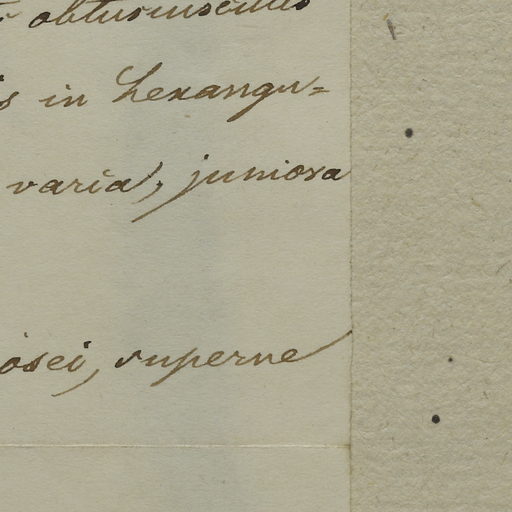 obtusiusculis
in hexangu=
varia, juniora
osei, superne